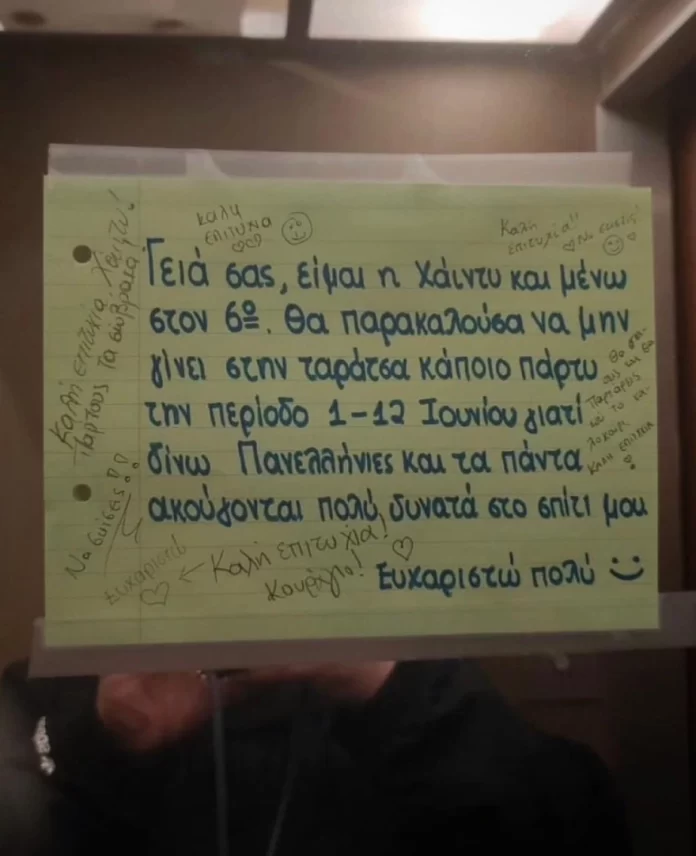 καλη
επιτυχια
Καλή
επιτυχία!!
Να σκίσεις!
Γειά σας, είμαι η Χάιντυ και μένω
στον 6º. Θα παρακαλούσα να μην
γίνει στην ταράτσα κάποιο πάρτυ
την περίοδο 1-12 Ιουνίου γιατί
δίνω Πανελλήνιες και τα πάντα
ακούγονται πολύ δυνατά στο σπίτι μου
Ευχαριστώ πολύ
Καλή επιτυχία Χάιντυ!
Παρτους τα σώβρακα!
Να σκίσεις!!
Ευχαριστώ
← Καλή επιτυχία!
Κουράγιο!
και θα
το κα-
λοκαίρι
καλη επιτυχια
!